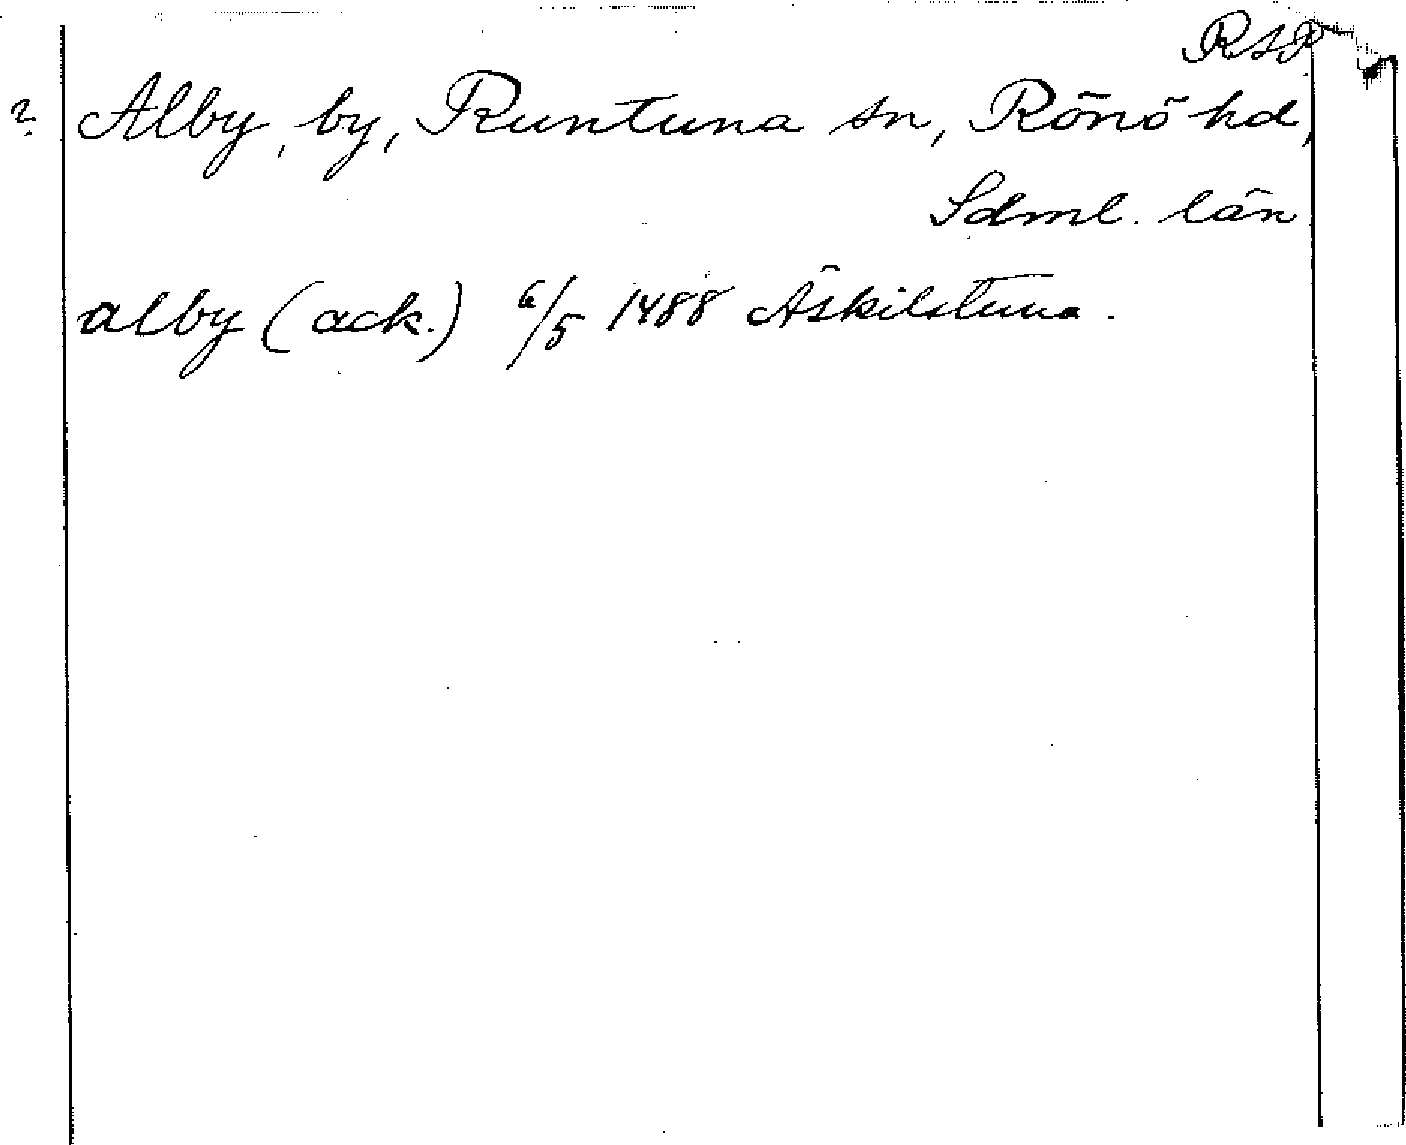 RAP
? Alby, by, Runtuna sn, Rönö hd,
Sdml. län
alby (ack.) 6/5 1488 Äskilstuna.